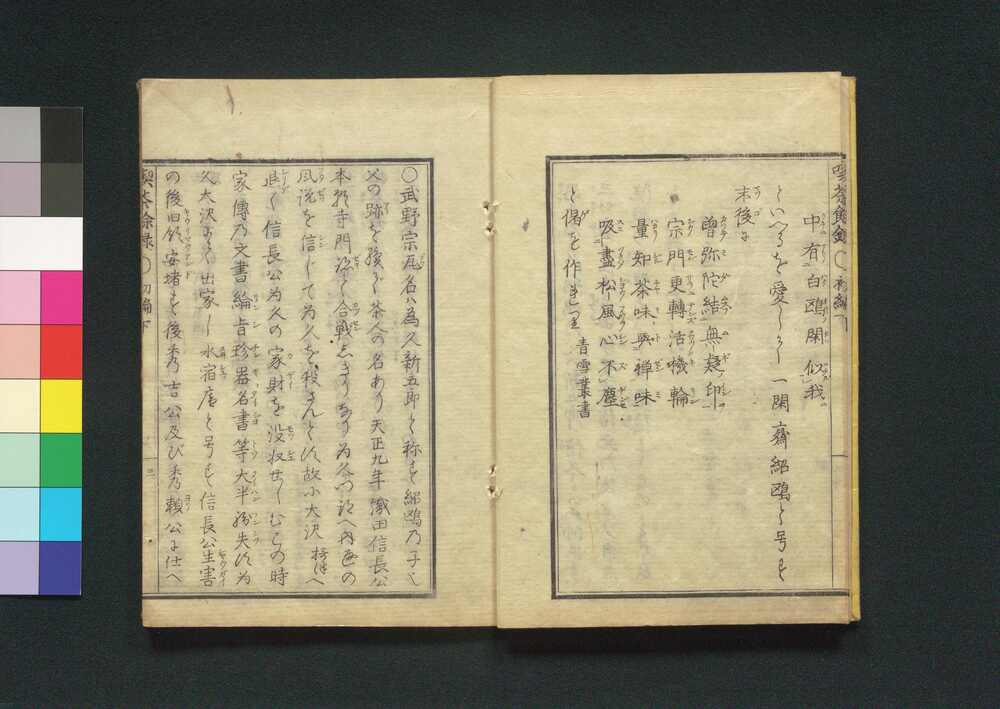 喫茶餘録 〇 初編下
中有白鴎閑似我
といへるを愛して一閑齋紹鴎と号す
末後に
曽弥陀結無礙印
宗門更轉活機輪
量知茶味與禅味
吸盡松風心不塵
と偈を作れり 青雲叢書
〇武野宗瓦名ハ為久新五郎と称す紹鴎乃子也
父の跡を継ぎ茶人の名あり天正九年織田信長公
本願寺門跡と合戦しきりなり為久門跡へ内通の
風説を信じて為久を殺さんとす故小大沢 へ
退く信長公為久の家財を没収せしむこの時
家傳乃文書綸旨珍器名書等大半紛失す為
久大沢にて出家し水宿庵と号す信長公生害
の後旧領安堵す後秀吉公及び秀頼公に仕へ
喫茶餘録 〇 初編下